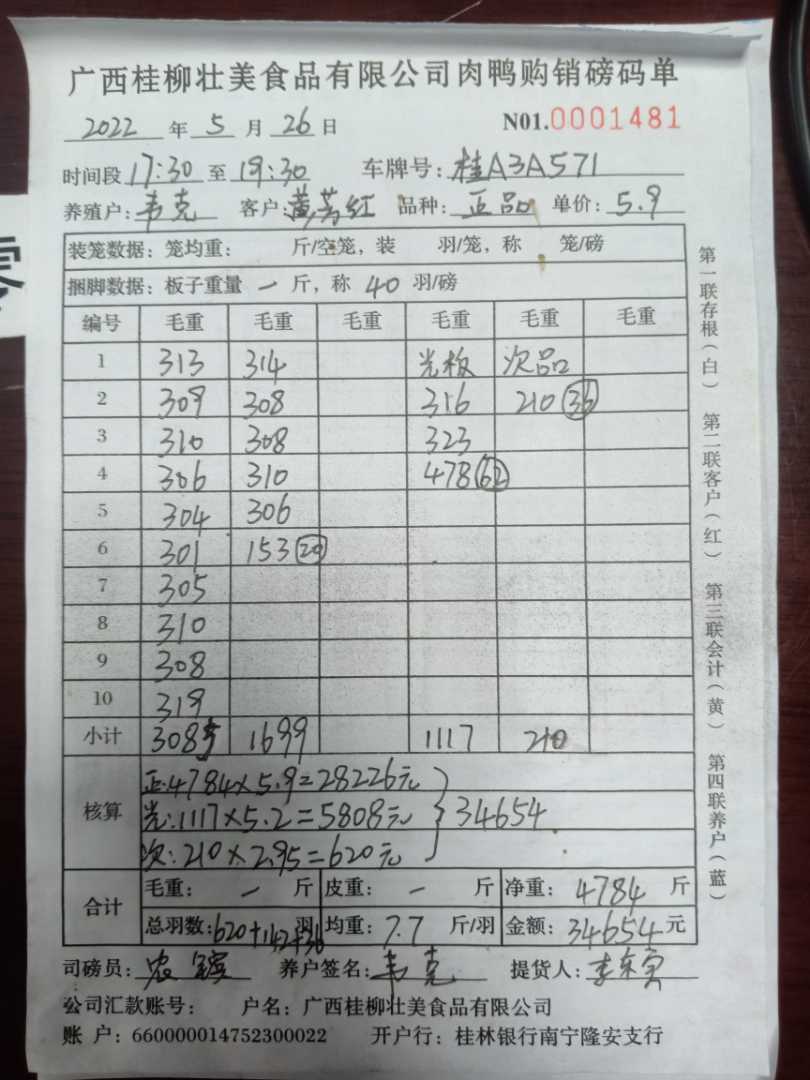 广西桂柳壮美食品有限公司肉鸭购销磅码单
2022 年 5 月 26 日 N01.0001481
时间段 17:30 至 19:30 车牌号: 桂A3A571
养殖户: 韦克 客户: 黄芳红 品种: 正品 单价: 5.9
装笼数据: 笼均重: 斤/空笼, 装 羽/笼, 称 笼/磅
捆脚数据: 板子重量 一 斤, 称 40 羽/磅
编号 毛重 毛重 毛重 毛重 毛重 毛重
1 313 314 光板 次品
2 309 308 316 210 36
3 310 308 323
4 306 310 478 62
5 304 306
6 301 153 20
7 305
8 310
9 308
10 319
小计 3085 1699 1117 210
核算
正:4784×5.9=28226元
光:1117×5.2=5808元 34654
次:210×2.95=620元
合计
毛重: 一 斤 皮重: 一 斤 净重: 4784 斤
总羽数: 620+142+36 羽 均重: 7.7 斤/羽 金额: 34654 元
司磅员: 农 养户签名: 韦克 提货人: 李
公司汇款账号: 户名: 广西桂柳壮美食品有限公司
账 户: 660000014752300022 开户行: 桂林银行南宁隆安支行
第一联存根(白) 第二联客户(红) 第三联会计(黄) 第四联养户(蓝)
零